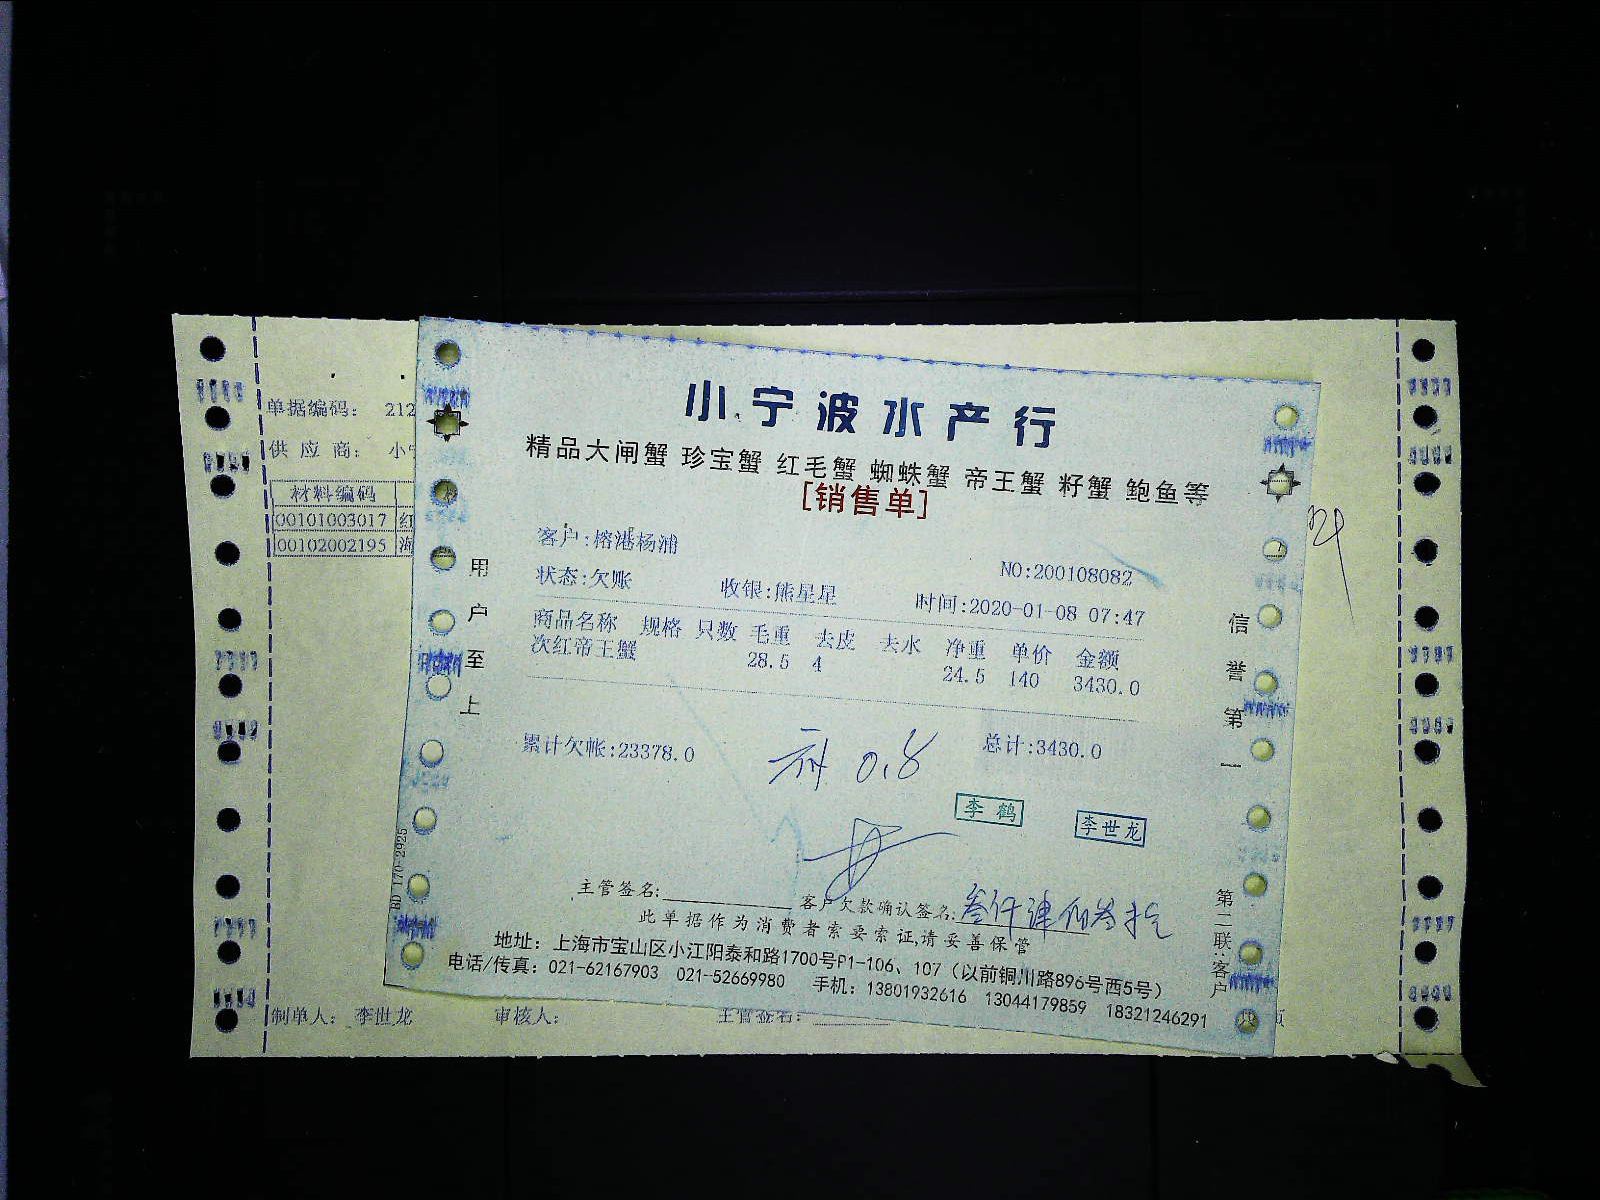 小宁波水产行
精品大闸蟹 珍宝蟹 红毛蟹 蜘蛛蟹 帝王蟹 籽蟹 鲍鱼等
[销售单]
客户:榕港杨浦
NO:200108082
状态:欠账 收银:熊星星 时间:2020-01-08 07:47
商品名称 规格 只数 毛重 去皮 去水 净重 单价 金额
次红帝王蟹 28.5 4 24.5 140 3430.0
累计欠帐:23378.0 总计:3430.0
0.8
李鹤
李世龙
主管签名: 客户欠款确认签名: 叁仟肆佰叁拾
此单据作为消费者索要索证,请妥善保管
地址：上海市宝山区小江阳泰和路1700号P1-106、107（以前铜川路896号西5号）
电话/传真：021-62167903 021-52669980 手机：13801932616 13044179859 18321246291
用户至上
信誉第一
第二联:客户
BD 170-2925
单据编码： 212
供应商： 小宁
材料编码
00101003017 红
00102002195 海
制单人： 李世龙 审核人： 主管签名：